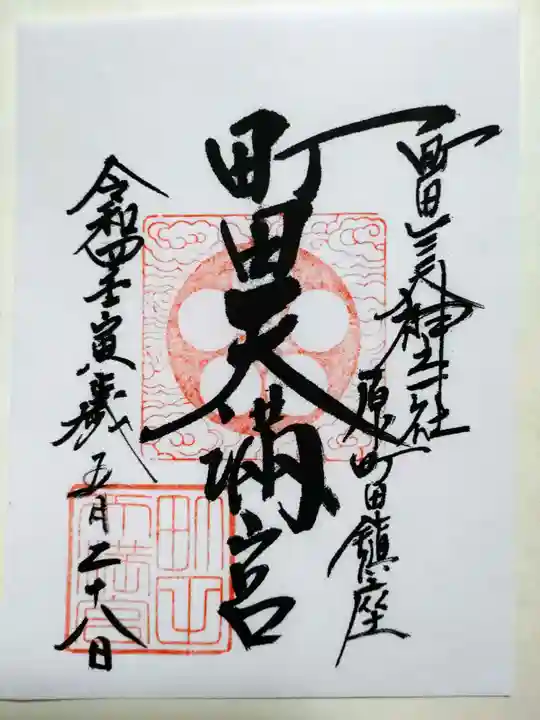 町田三天神社一社
原町田鎮座
町田天満宮
令和四壬寅歳
五月二十八日